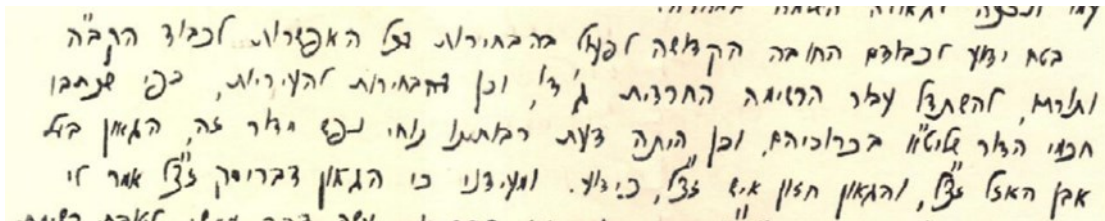 בטח ידוע לכבודם החובה הקדושה לפעול בהבחירות בכל האפשרות לכבוד הקב"ה
ותורתו, להשתדל עבור הרשימה החרדית ג' ד', וכן שהבחירות להעיריות, כפי שנכתבו
חכמי הדור שליט"א בכרוזיהם, וכן היתה דעת רבותינו נוחי נפש מדור זה, הגאון בעל
אבן האזל זצ"ל, והגאון חזון איש זצ"ל, כידוע. ומעידני כי הגאון דבריסק זצ"ל אמר לי